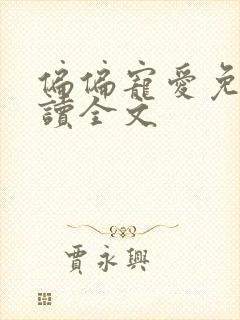 偏偏寵愛免
讀全文
賈永興